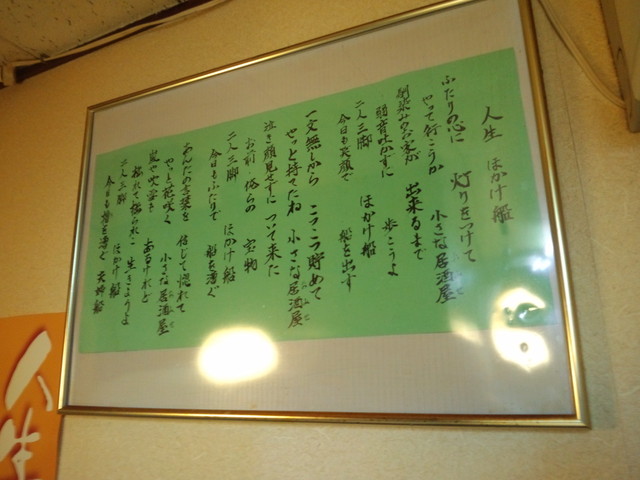 人生 ほかけ船
ふたりの心に 灯りをつけて
やって行こうか 小さな居酒屋
馴染みのお客が 出来るまで
弱音吐かずに 歩こうよ
二人三脚 ほかけ船
今日も笑顔で 船を出す
一文無しから こつこつ貯めて
やっと持てたね 小さな居酒屋
泣き顔見せずに ついて来た
お前は俺らの 宝物
二人三脚 ほかけ船
今日もふたりで 船を漕ぐ
あんたの言葉を 信じて惚れて
やっと花咲く 小さな居酒屋
嵐や吹雪も あるけれど
揺れて揺られて 生きようよ
二人三脚 ほかけ船
今日も櫓を漕ぐ 夫婦船
人生